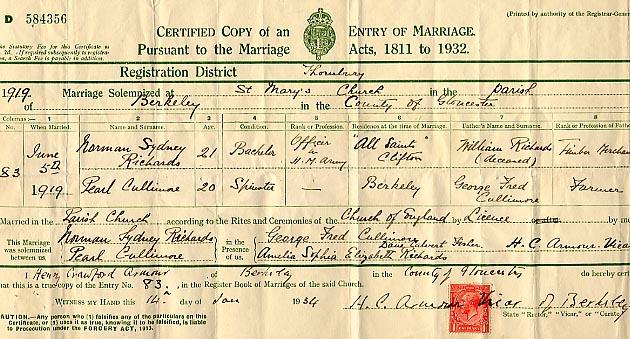 D 584356
(Printed by authority of the Registrar-Gener
CERTIFIED COPY OF AN ENTRY OF MARRIAGE.
PURSUANT TO THE MARRIAGE ACTS, 1811 TO 1932.
The Statutory Fee for this Certificate is
If required subsequently to registra-
tion, a Search Fee is payable in addition.
Registration District Thornbury
1919. Marriage Solemnized at St Mary's Church in the Parish
of Berkeley in the County of Gloucester
Columns:— 1 2 3 4 5 6 7 8
When Married. Name and Surname. Age. Condition. Rank or Profession. Residence at the time of Marriage. Father's Name and Surname. Rank or Profession of Fath
83 June 5th 1919
Norman Sydney Richards 21 Bachelor Officer in H.M. Army "All Saints" Clifton William Richards (deceased) Timber Merchan
Pearl Cullimore 20 Spinster — Berkeley George Fred Cullimore Farmer
Married in the Parish Church according to the Rites and Ceremonies of the Church of England by Licence by m
This Marriage was solemnized between us
Norman Sydney Richards
Pearl Cullimore
in the Presence of us,
George Fred Cullimore
Amelia Sophia Elizabeth Richards
H. C. Armour. Vicar
I Henry Crawford Armour of Berkeley in the County of Gloucester do hereby certi
that this is a true copy of the Entry No. 83, in the Register Book of Marriages of the said Church.
WITNESS MY HAND this 14th day of Jan 1934 H. C. Armour Vicar of Berkeley
State "Rector," "Vicar," or "Curate
CAUTION.—Any person who (1) falsifies any of the particulars on this
Certificate, or (2) uses it as true, knowing it to be falsified, is liable
to Prosecution under the FORGERY ACT, 1913.